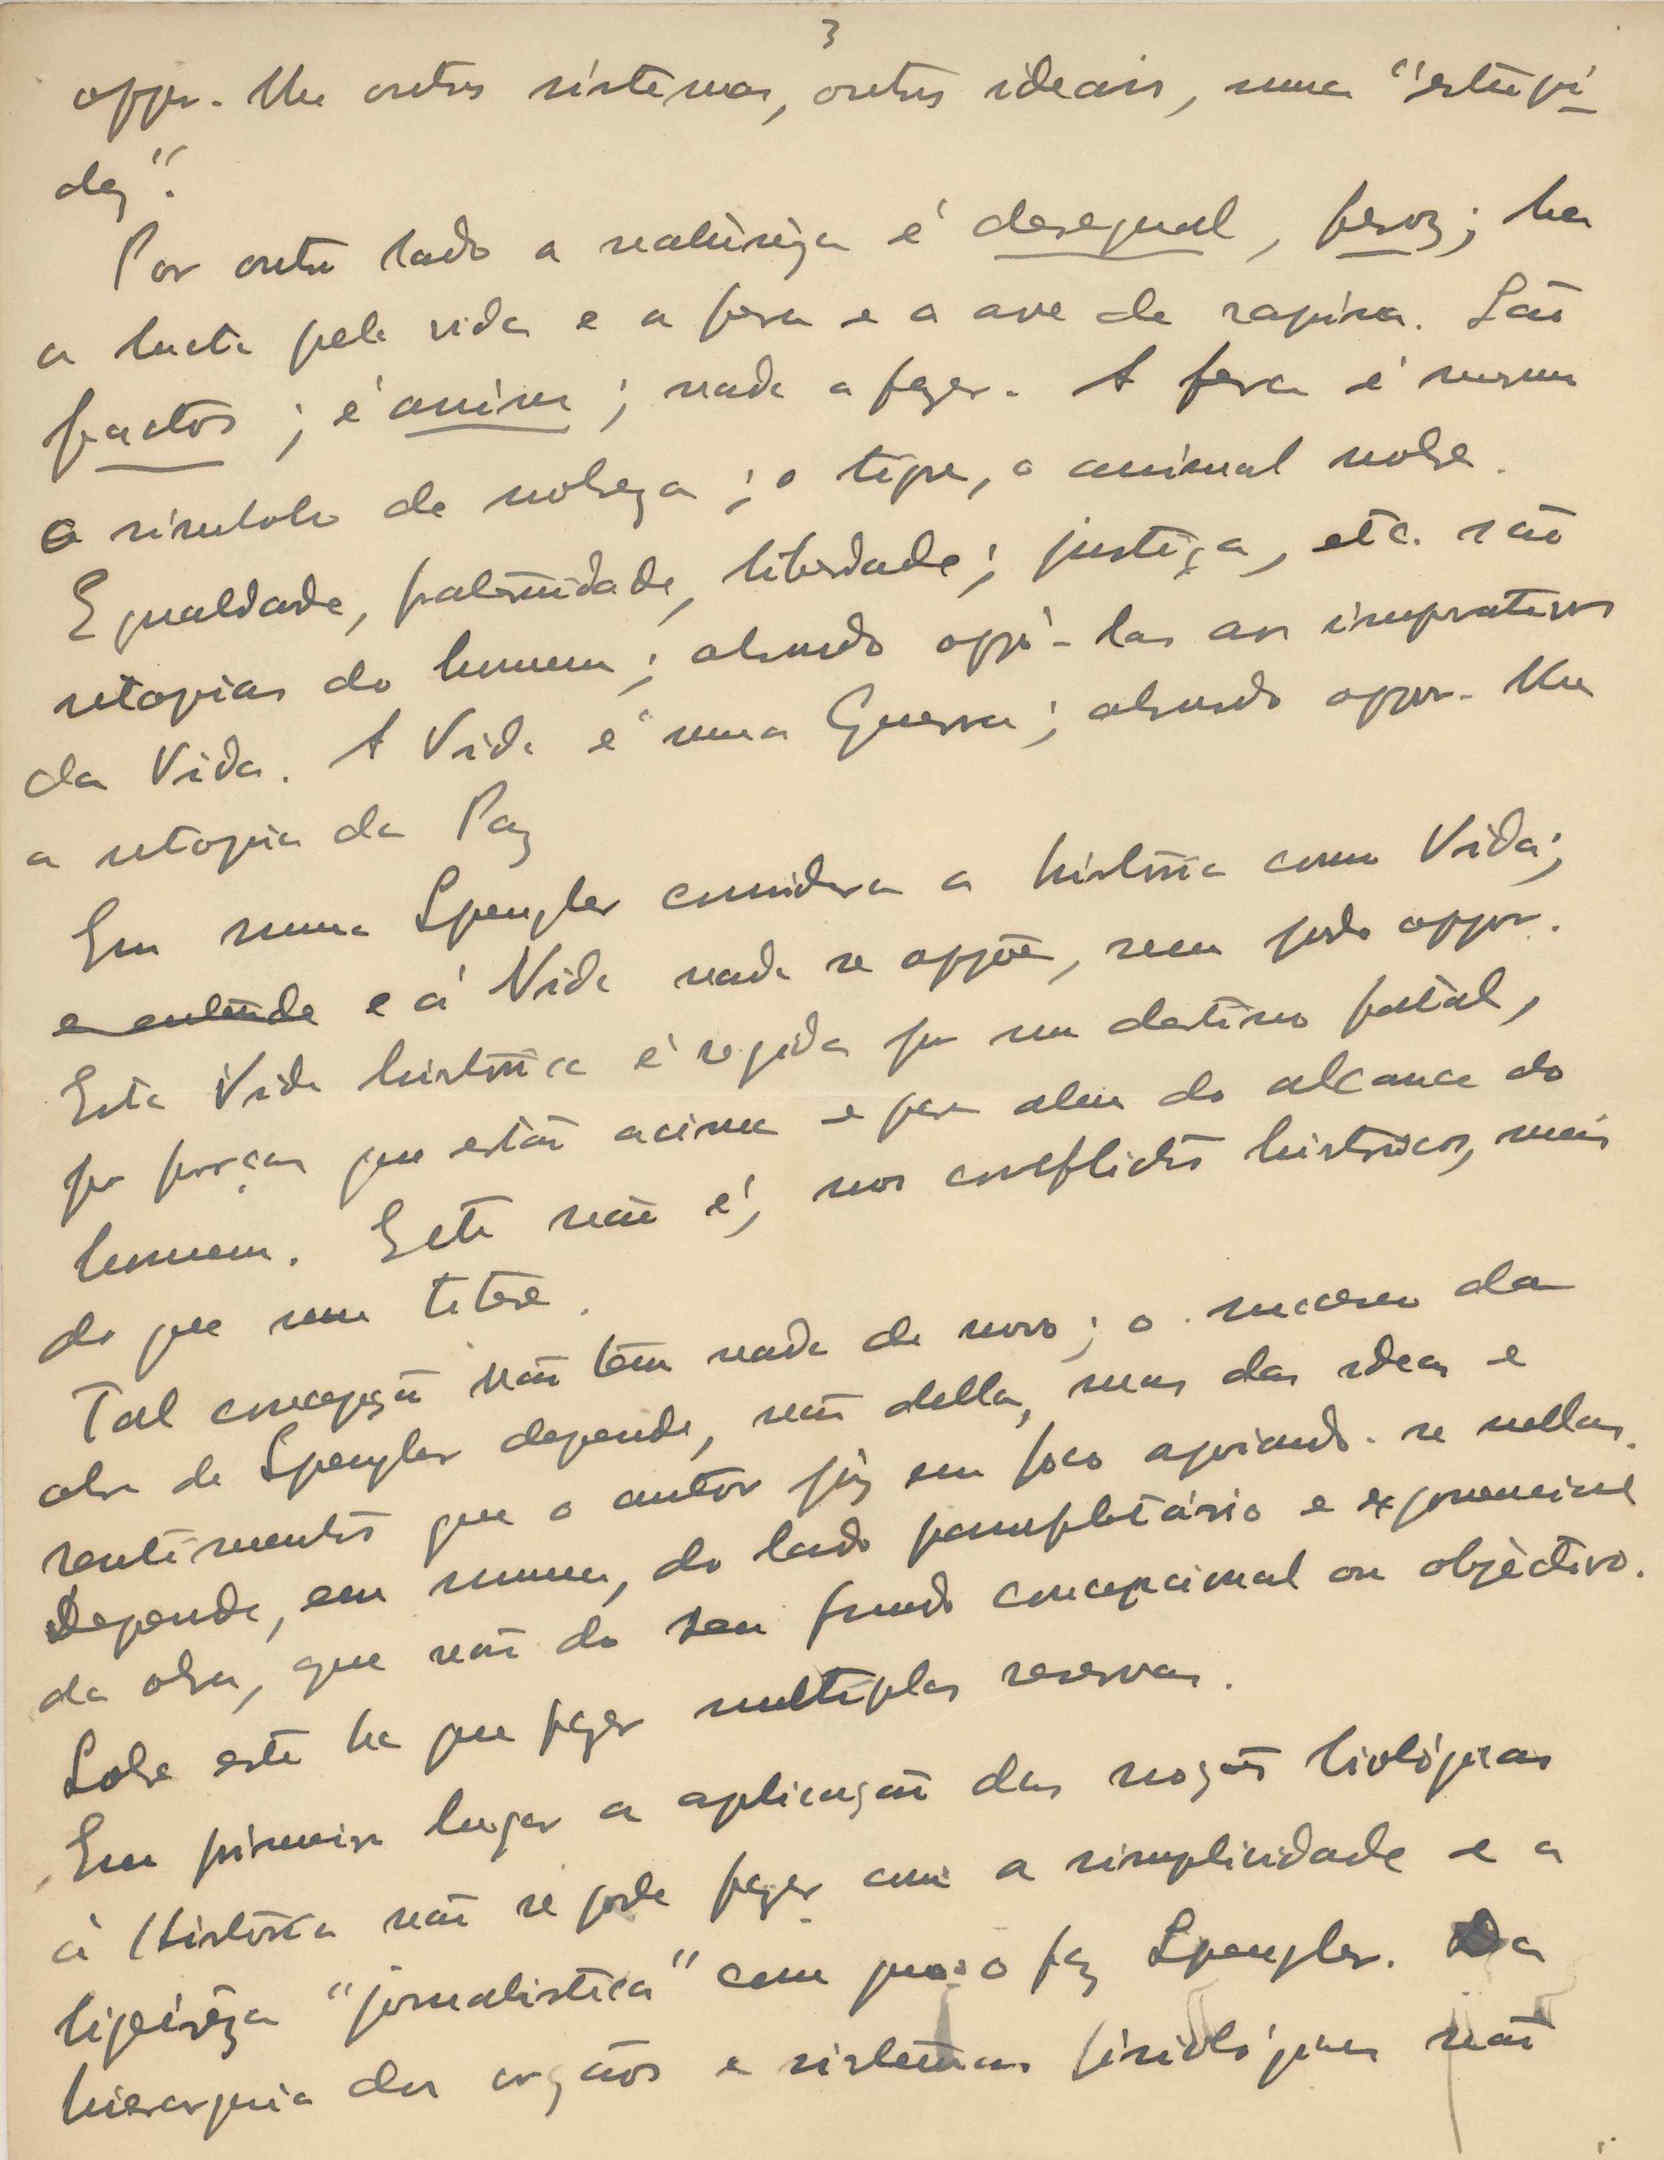 3
oppor-lhe outros sistemas, outros ideais, uma "estupi-
dez".
Por outro lado a naturêza é desegual, feroz; ha
a lucta pela vida e a fera e a ave de rapina. São
factos; é assim; nada a fazer. A fera é mesmo
o simbolo de nobreza; o tipo, o animal nobre.
Egualdade, fraternidade, liberdade; justiça, etc. são
utopias do homem; absurdo oppô-las aos imperativos
da Vida. A Vida é uma Guerra; absurdo oppor-lhe
a utopia da Paz
Em suma Spengler considera a história como Vida;
e entende e á Vida nada se oppõe, nem pode oppor.
Esta Vida histórica é regida por um destino fatal,
por forças que estão acima e para alem do alcance do
homem. Este não é, nos conflictos históricos, mais
do que um titere.
Tal concepção não têm nada de novo; o sucesso da
obra de Spengler depende, não della, mas das ideas e
sentimentos que o autor põz em foco apoiando-se nellas.
Depende, em summa, do lado pamfletário e
da obra, que não do seu fundo concepcional ou objéctivo.
Sobre este ha que fazer multiplas reservas.
Em primeiro lugar a aplicação das noções biológicas
á História não se pode fazer com a simplicidade e a
ligeirêza "jornalistica" com que o fez Spengler. Da
hierarquia dos orgãos e sistemas fisiológicos não